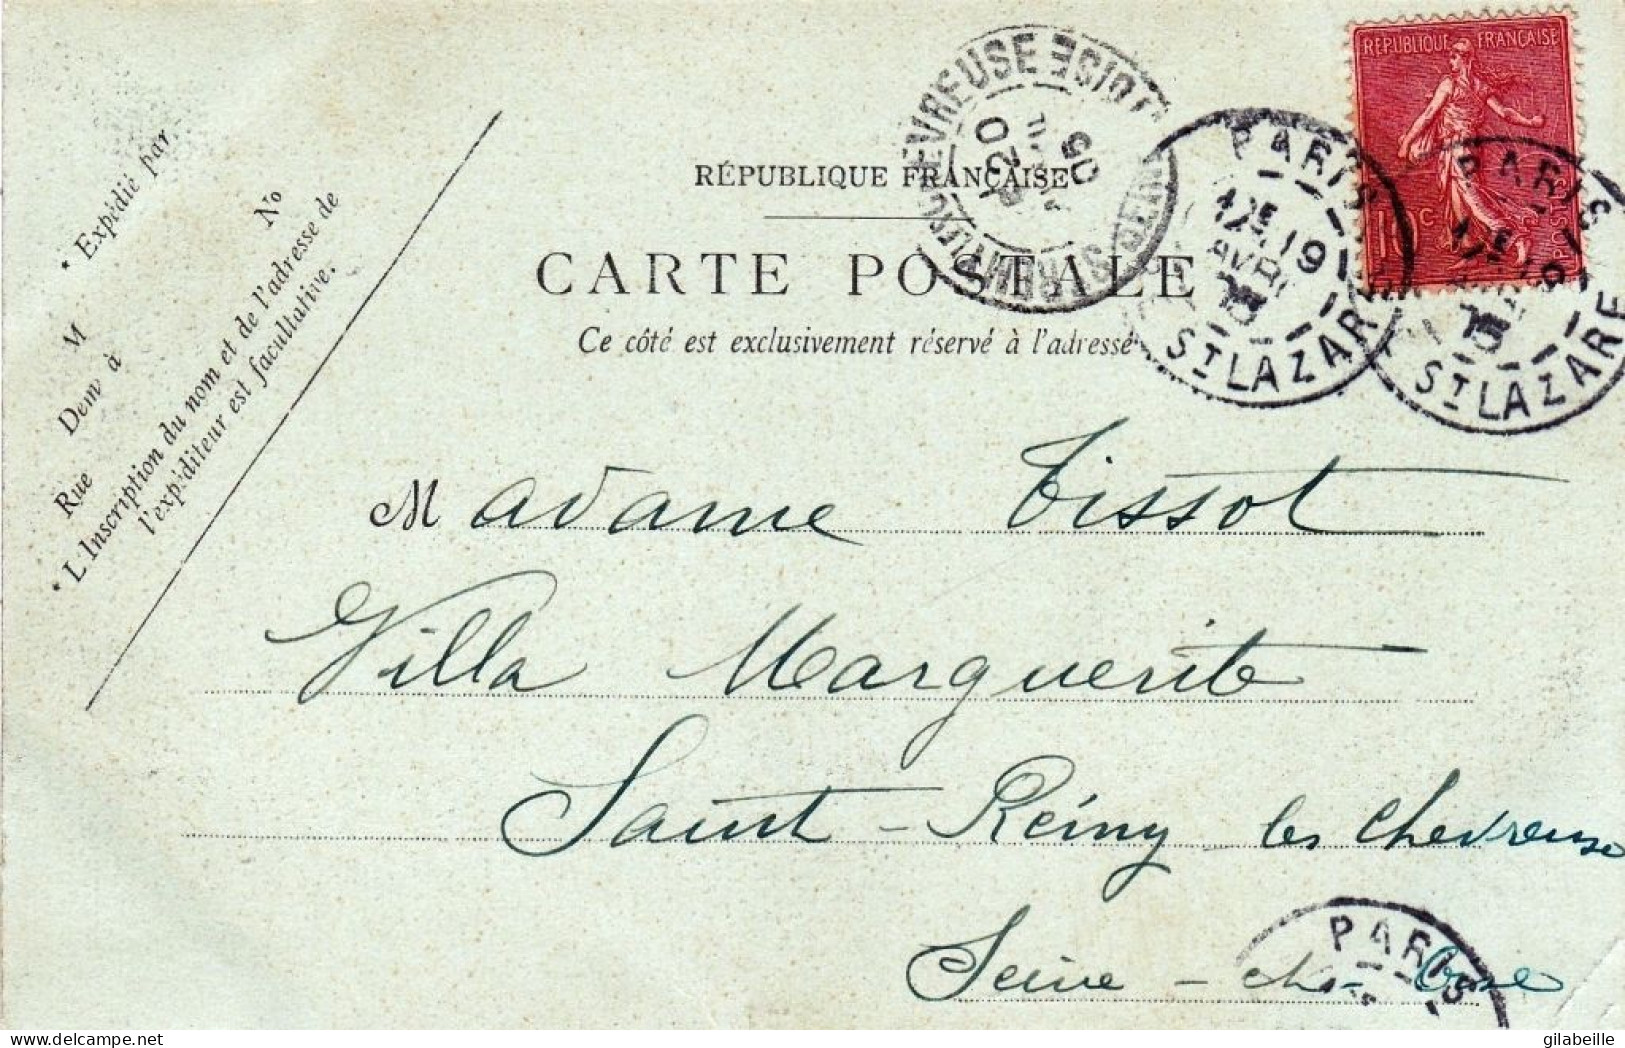 RÉPUBLIQUE FRANÇAISE
CARTE POSTALE
Ce côté est exclusivement réservé à l'adresse
* Expédié par
No
M
Dem à
Rue
* L'Inscription du nom et de l'adresse de
l'expéditeur est facultative.
RÉPUBLIQUE FRANÇAISE
10c
POSTES
PARIS
19
AVRIL
05
ST LAZARE
PARIS
19
05
ST LAZARE
ST REMY LES CHEVREUSE
SEINE ET OISE
20
05
Madame Tissot
Villa Marguerite
Saint-Rémy les Chevreuse
Seine-et-Oise
PARIS
gilabeille